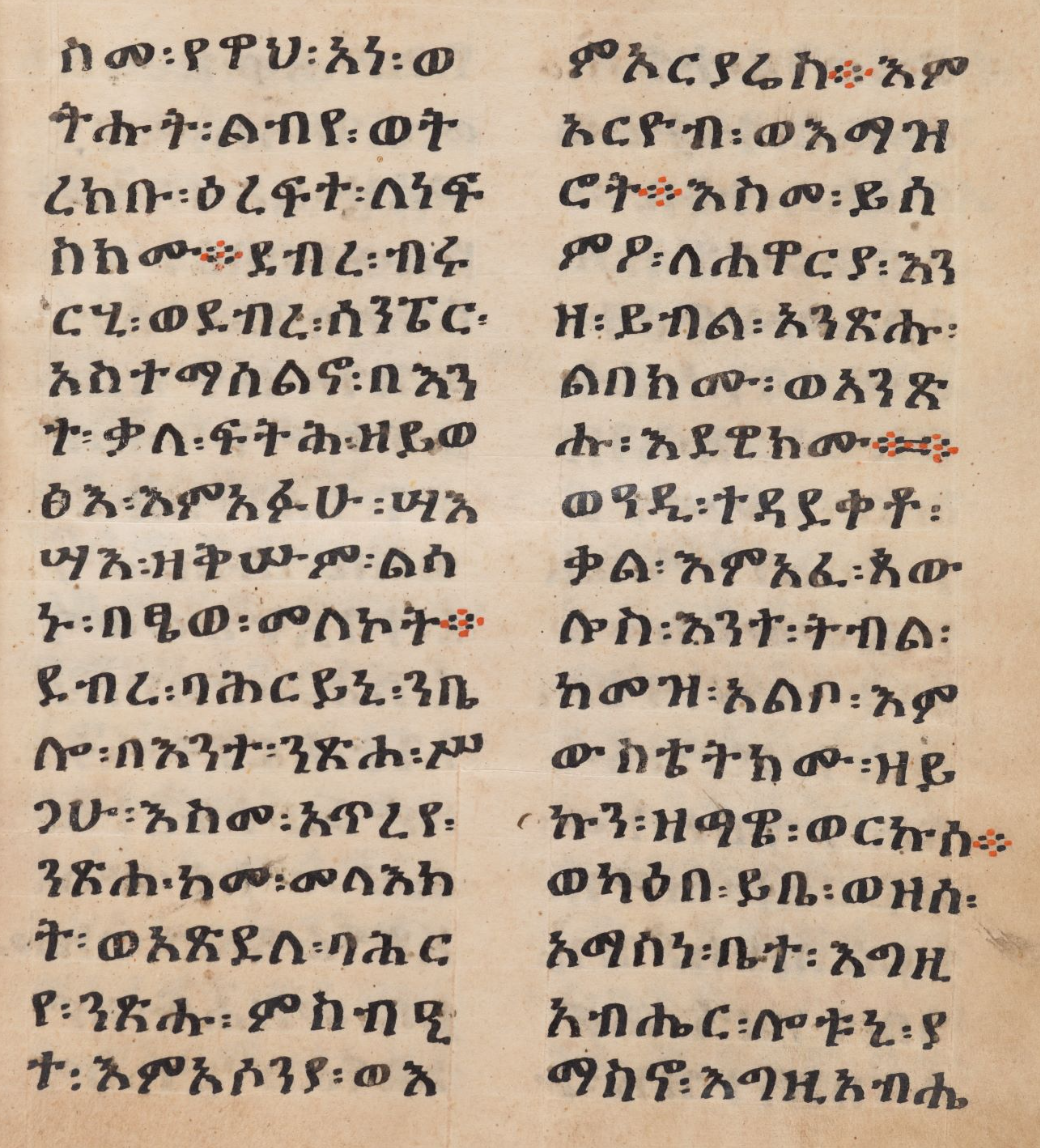 ስመ፡የዋህ፡አነ፡ወ
ትሑት፡ልብየ፡ወት
ረከቡ፡ዕረፍተ፡ለነፍ
ስክሙ፨ደብረ፡ብሩ
ርሂ፡ወደብረ፡ሰንፔር፡
አስተማሰልኖ፡በእን
ተ፡ቃለ፡ፍትሕ፡ዘይወ
ፅእ፡እምአፉሁ፡ሣእ
ሣእ፡ዘቅሡም፡ልሳ
ኑ፡በፄወ፡መለኮት፨
ደብረ፡ባሕርይኒ፡ንቤ
ሎ፡በእንተ፡ንጽሐ፡ሥ
ጋሁ፡እስመ፡አጥረየ፡
ንጽሐ፡ከመ፡መላእክ
ት፡ወአጽደለ፡ባሕር
የ፡ንጽሑ፡ምስብዒ
ተ፡እምአሶንያ፡ወእ
ምኦርያሬስ፨እም
አርዮብ፡ወእማዝ
ሮት፨እስመ፡ይሰ
ምዖ፡ለሐዋርያ፡እን
ዘ፡ይብል፡አንጽሑ፡
ልበክሙ፡ወአንጽ
ሑ፡እደዊክሙ፨፨
ወዓዲ፡ተዳደቀቶ፡
ቃል፡እምአፈ፡ጳው
ሎስ፡እንተ፡ትብል፡
ከመዝ፡አልቦ፡እም
ውስቴትክሙ፡ዘይ
ኩን፡ዘማዌ፡ወርኩሰ፨
ወካዕበ፡ይቤ፡ወዘሰ፡
አማስነ፡ቤተ፡እግዚ
አብሔር፡ሎቱኒ፡ያ
ማስኖ፡እግዚአብሔ